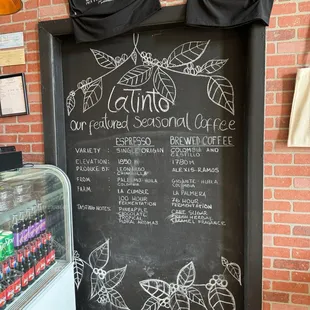 LaTinto
our featured Seasonal Coffee
ESPRESSO BREWED COFFEE
VARIETY: SINGLE ORIGIN COLOMBIA AND CASTILLO
ELEVATION: 1850 M 1780 M
PRODUCE BY: LEONARDO ALEXIS RAMOS
FROM: HUILA COLOMBIA GIGANTE-HUILA COLOMBIA
FARM: LA CUMBLE LA PALMERA
100 HOUR FERMENTATION 76 HOUR FERMENTATION
TASTING NOTES: PINEAPPLE CANE SUGAR
CHOCOLATE HERBAL
TROPICAL CARAMEL FRAGRANCE
FLORAL AROMAS